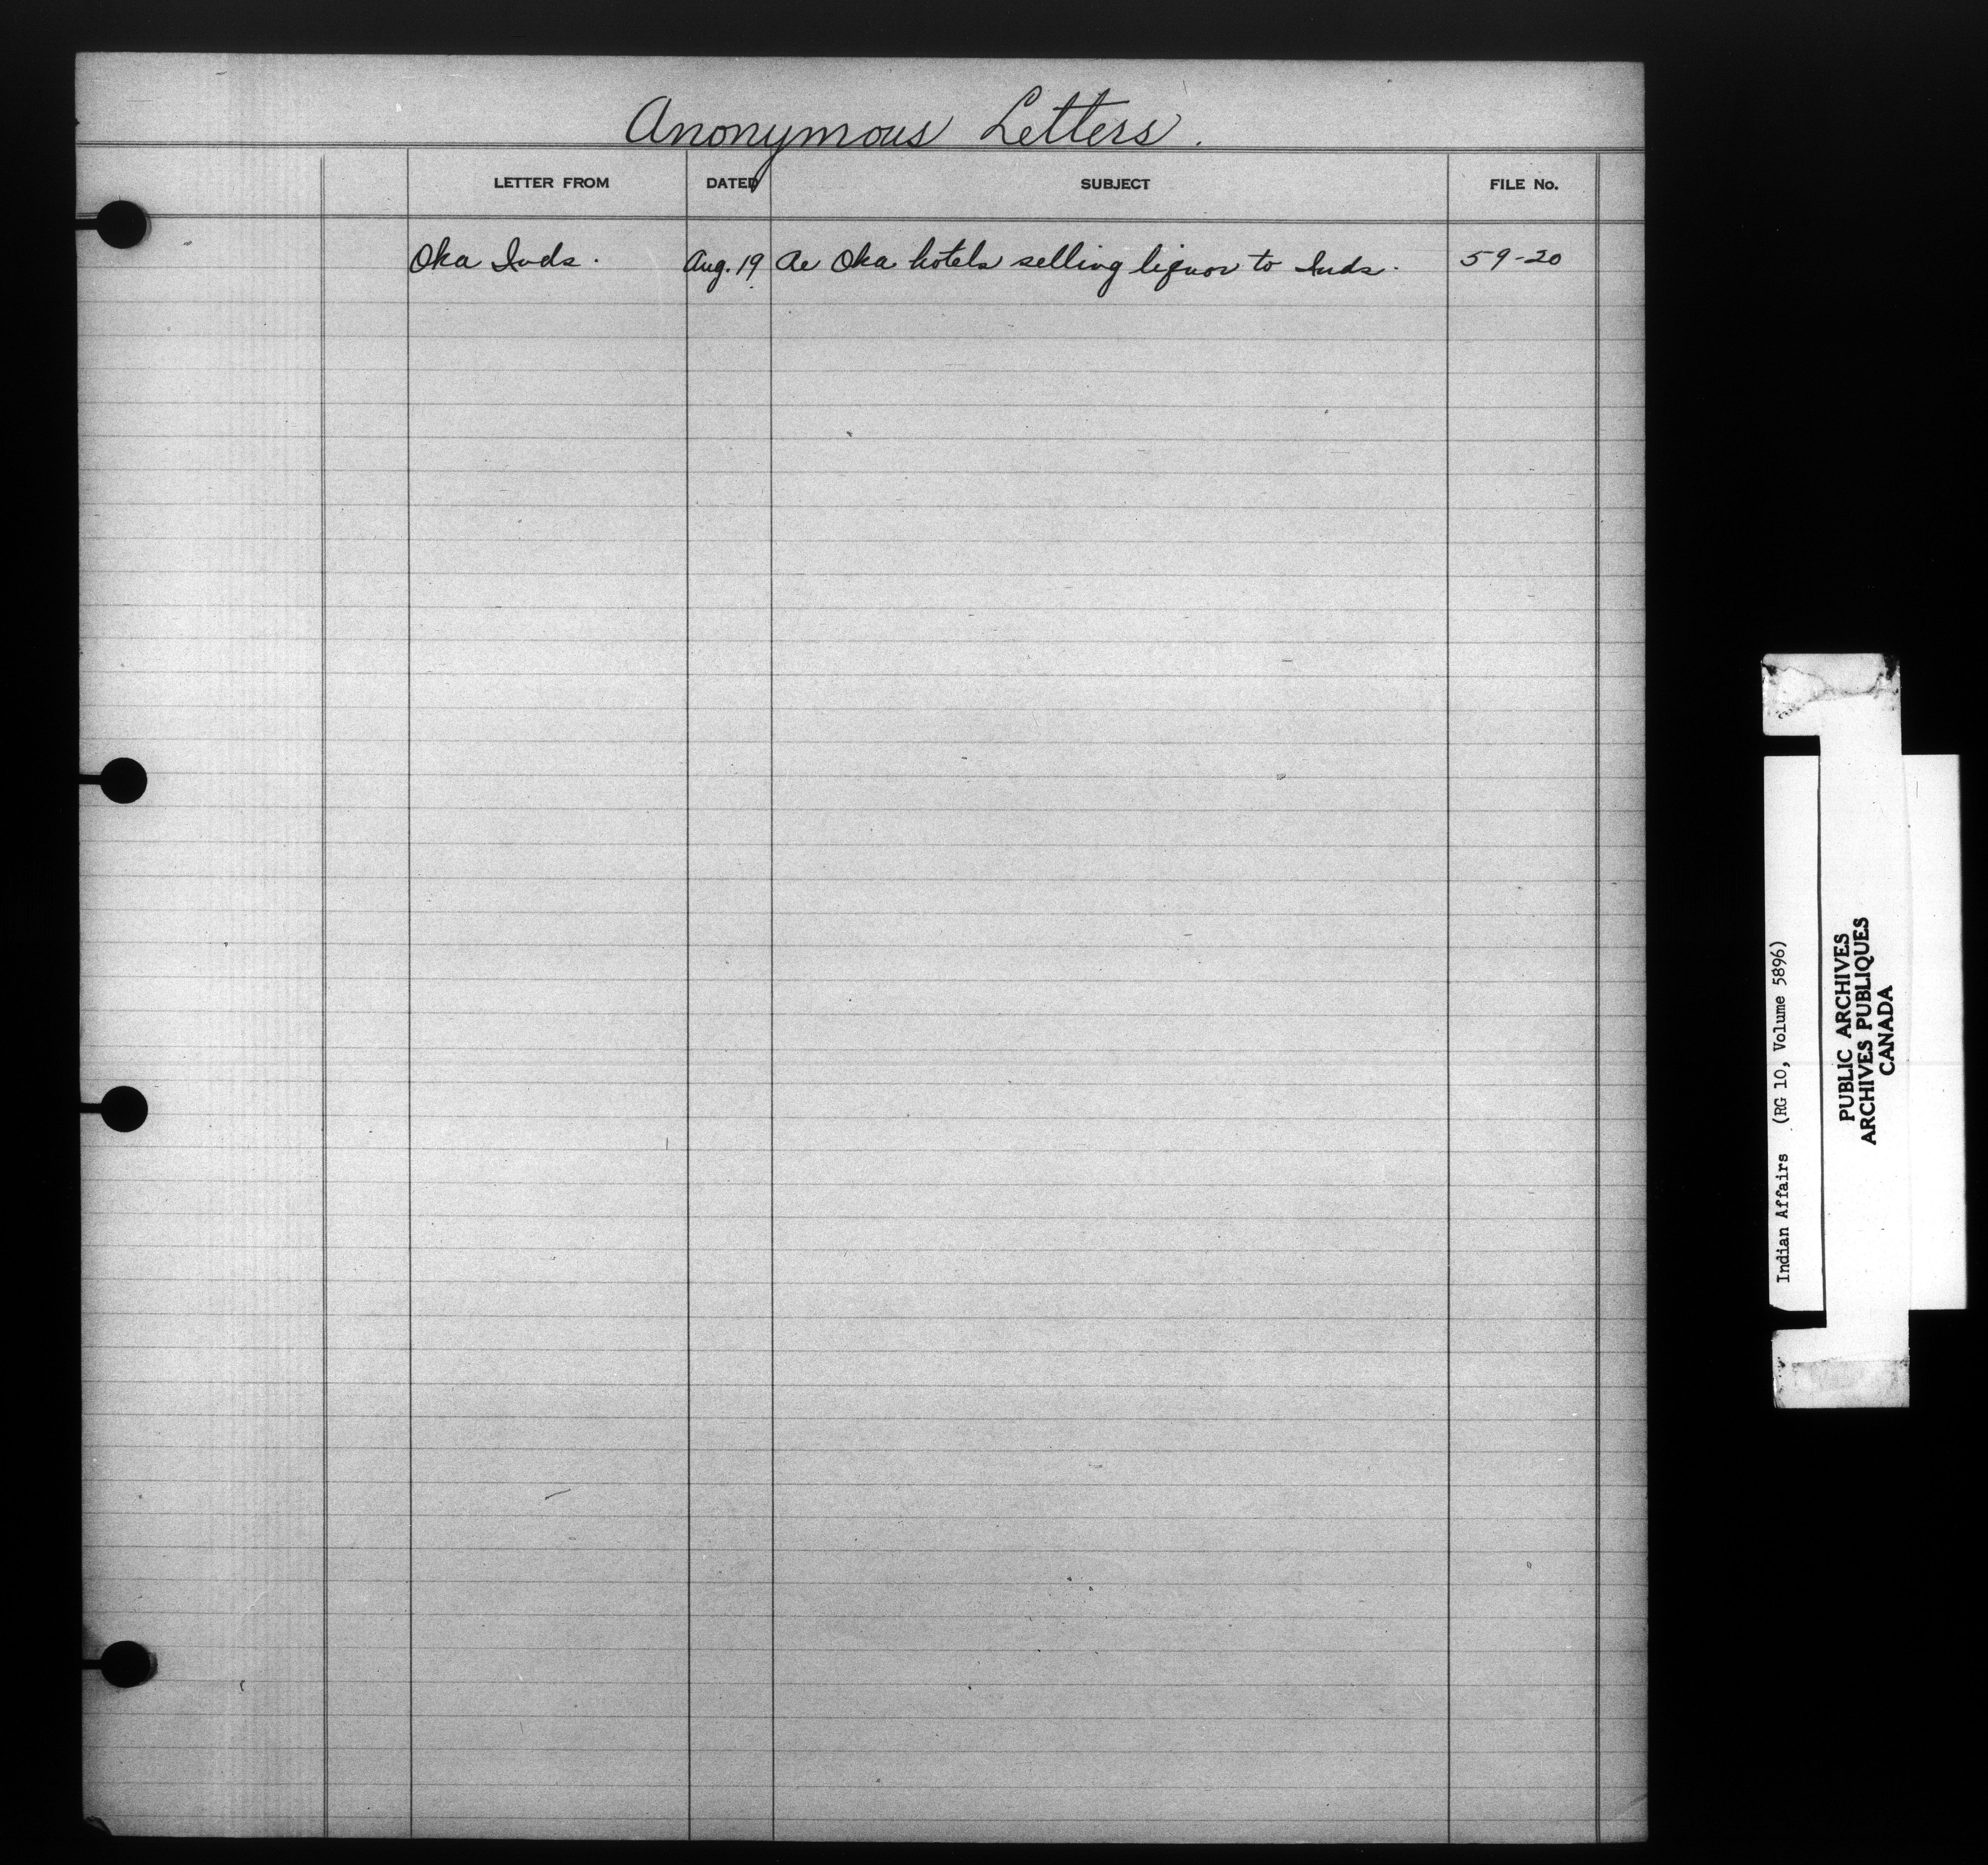 Anonymous Letters.
LETTER FROM DATED SUBJECT FILE No.
Oka Inds. Aug. 19 Re Oka hotels selling liquor to Inds. 59-20
Indian Affairs (RG 10, Volume 5896)
PUBLIC ARCHIVES
ARCHIVES PUBLIQUES
CANADA